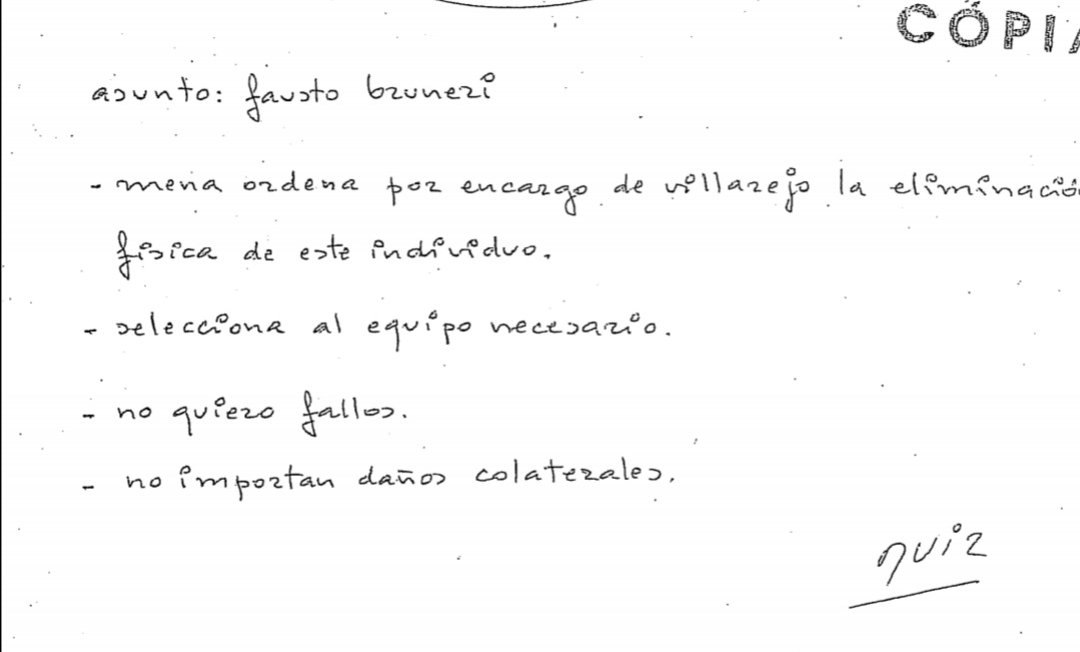 CÓPIA
asunto: fausto bruneri
- mena ordena por encargo de villarejo la eliminación
física de este individuo.
- selecciona al equipo necesario.
- no quiero fallos.
- no importan daños colaterales.